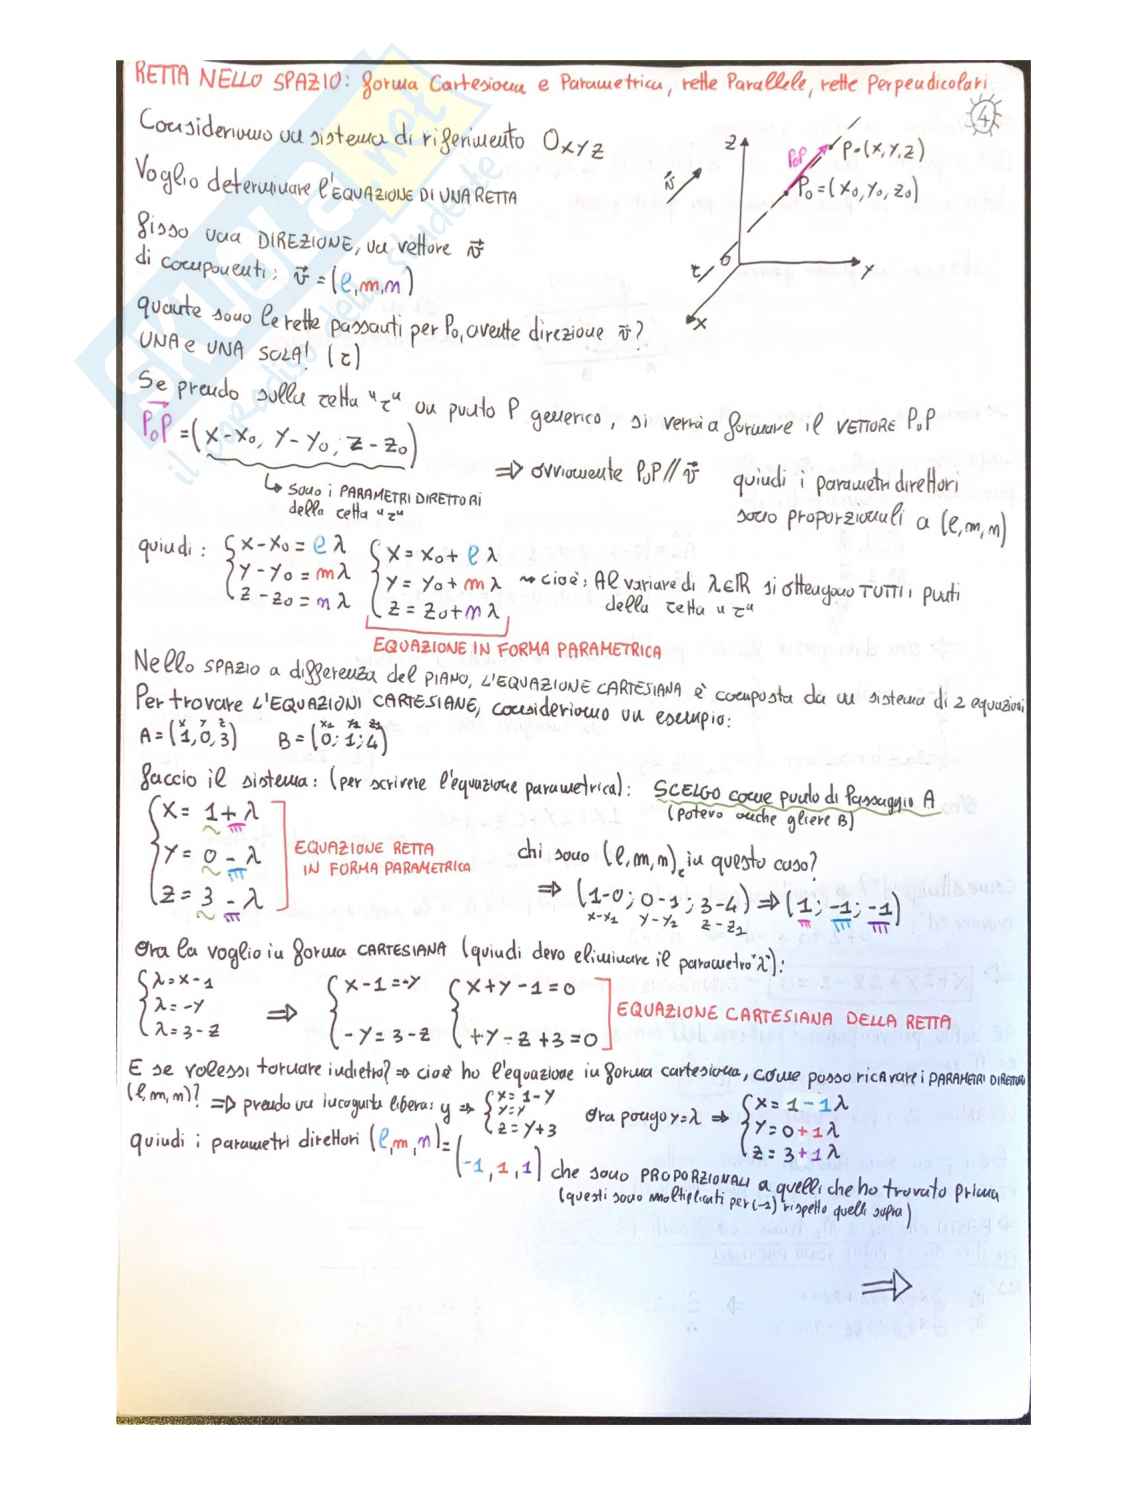 RETTA NELLO SPAZIO: forma Cartesiana e Parametrica, rette Parallele, rette Perpendicolari
4
Consideriamo un sistema di riferimento Oxyz
Voglio determinare l'EQUAZIONE DI UNA RETTA
fisso una DIREZIONE, un vettore v⃗
di componenti: v⃗ = (l, m, n)
z
v⃗
P₀P
P=(x, y, z)
P₀=(x₀, y₀, z₀)
r
O
y
x
quante sono le rette passanti per P₀, avente direzione v⃗?
UNA e UNA SOLA! (r)
Se prendo sulla retta "r" un punto P generico, si verrà a formare il VETTORE P₀P
P₀P = (x-x₀, y-y₀; z-z₀)
↳ sono i PARAMETRI DIRETTORI
della retta "r"
⇒ ovviamente P₀P // v⃗
quindi i parametri direttori
sono proporzionali a (l, m, n)
quindi: { x-x₀ = l λ { x = x₀ + l λ
y-y₀ = m λ y = y₀ + m λ ⇝ cioè: Al variare di λ∈ℝ si ottengono TUTTI i punti
z-z₀ = n λ z = z₀ + n λ della retta "r"
EQUAZIONE IN FORMA PARAMETRICA
Nello SPAZIO a differenza del PIANO, L'EQUAZIONE CARTESIANA è composta da un sistema di 2 equazioni
Per trovare L'EQUAZIONI CARTESIANE, consideriamo un esempio:
x y z x₂ y₂ z₂
A = (1, 0, 3) B = (0; 1; 4)
faccio il sistema: (per scrivere l'equazione parametrica): SCELGO come punto di Passaggio A
(potevo anche gliere B)
{ x = 1 + λ
y = 0 - λ
z = 3 - λ
EQUAZIONE RETTA
IN FORMA PARAMETRICA
chi sono (l, m, n) in questo caso?
⇒ (1-0; 0-1; 3-4) ⇒ (1; -1; -1)
x-x₂ y-y₂ z-z₂
Ora la voglio in forma CARTESIANA (quindi devo eliminare il parametro "λ"):
{ λ = x-1 { x-1 = -y { x+y-1 = 0
λ = -y ⇒ EQUAZIONE CARTESIANA DELLA RETTA
λ = 3-z -y = 3-z +y-z+3 = 0
E se volessi tornare indietro? ⇒ cioè ho l'equazione in forma cartesiana, come posso ricavare i PARAMETRI DIRETTORI
(l, m, n)? ⇒ prendo un incognita libera: y ⇒ { x = 1-y
y = y
z = y+3
Ora pongo y=λ ⇒ { x = 1 - 1λ
y = 0 + 1λ
z = 3 + 1λ
quindi i parametri direttori (l, m, n) = (-1, 1, 1) che sono PROPORZIONALI a quelli che ho trovato prima
(questi sono moltiplicati per (-1) rispetto quelli sopra)
⇒
SKUOLA.net
il paradiso dello studente